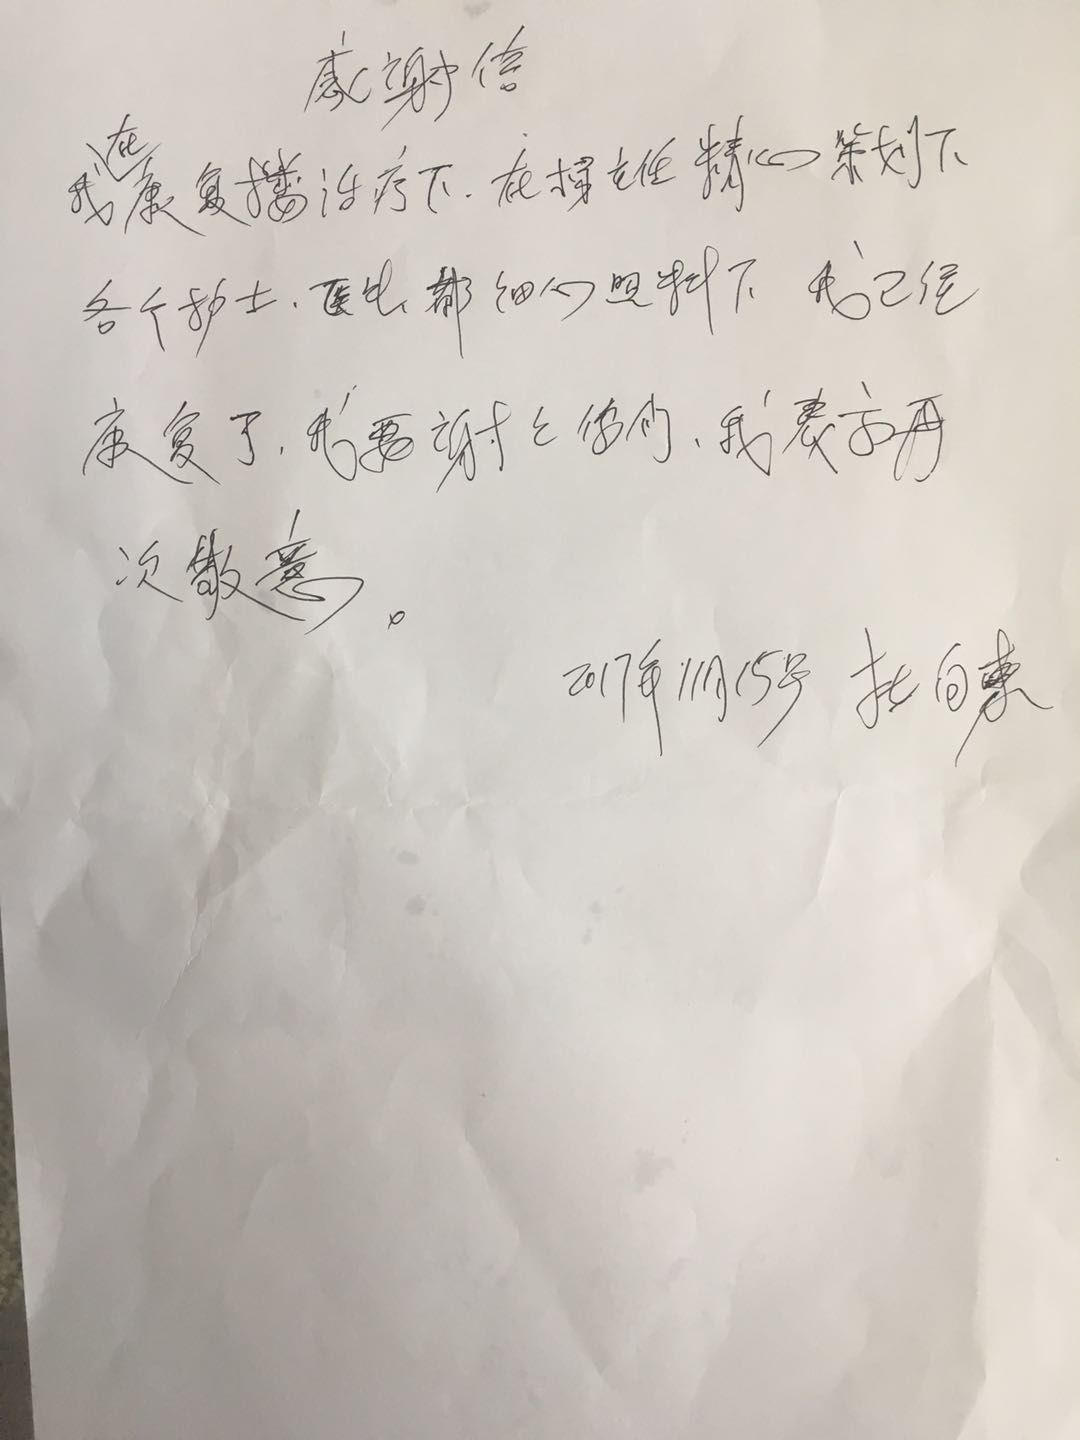 感谢信
我在康复楼治疗下.在杨主任精心策划下
各个护士、医生都细心照料下 我已经
康复了、我要谢谢你们、我表示再
次敬意。
2017年11月15号 杜向東